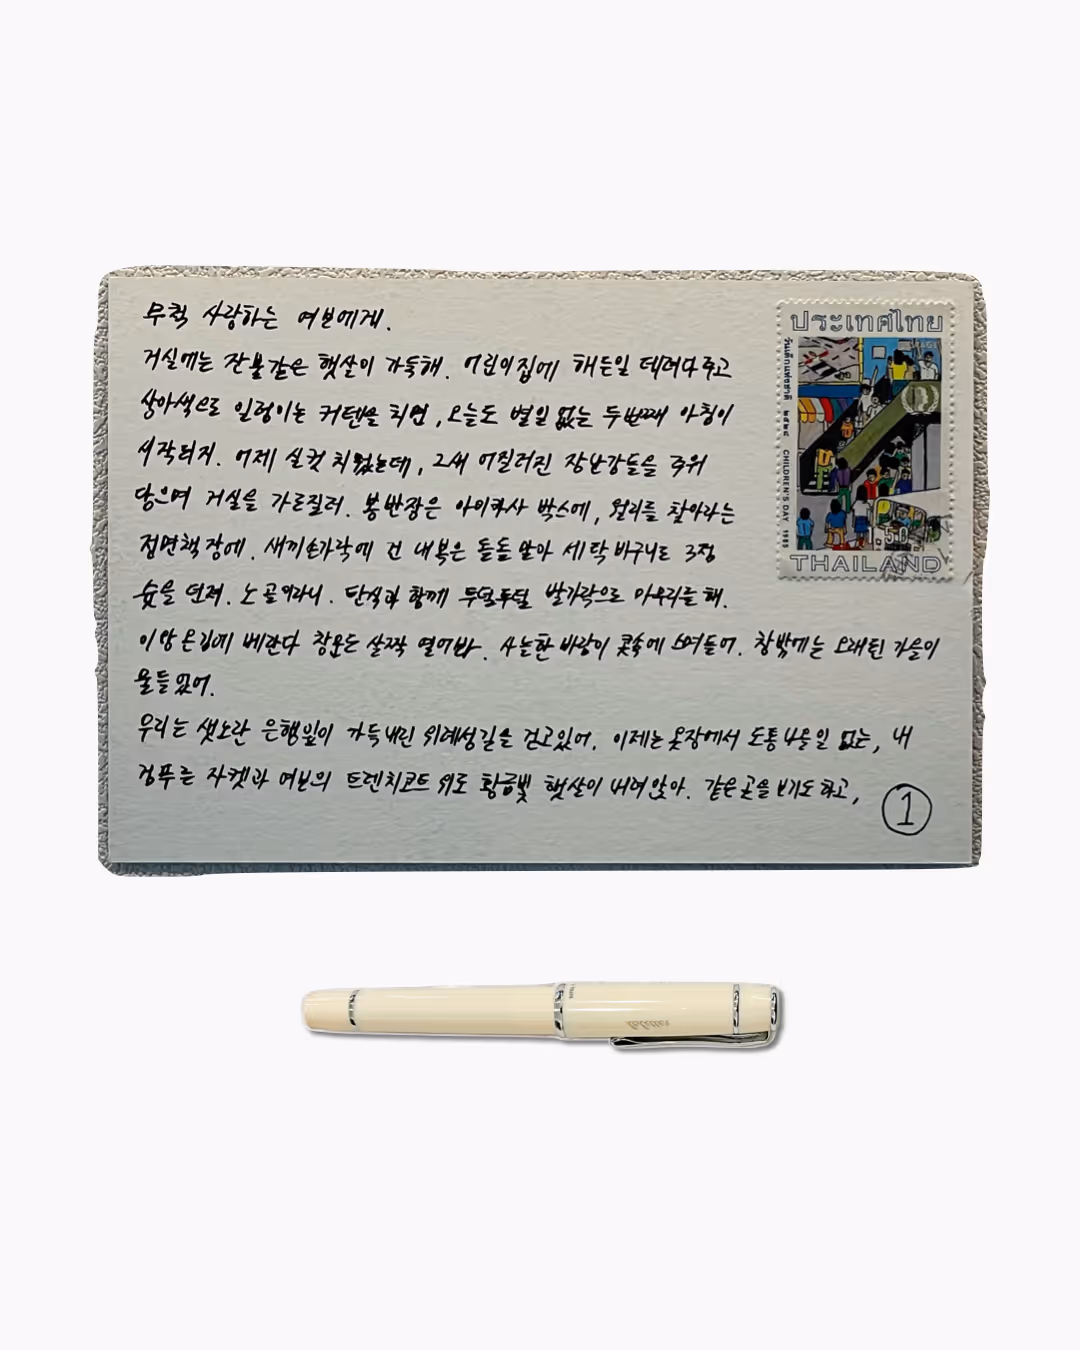 무척 사랑하는 여보에게.
거실에는 잔불같은 햇살이 가득해. 어린이집에 해든일 데려다주고
상아색으로 일렁이는 커텐을 치면, 오늘도 별일 없는 두번째 아침이
시작되지. 어제 실컷 치웠는데, 그새 어질러진 장난감들을 주워
담으며 거실을 가로질러. 봉반장은 아이하사 박스에, 월리를 찾아라는
전면책장에. 새끼손가락에 건 내복은 돌돌 말아 세탁바구니로 3점
슛을 던져. 노골이라니. 탄식과 함께 투덜투덜 발가락으로 마무리를 해.
이왕 온김에 베란다 창문도 살짝 열어봐. 사늘한 바람이 콧속에 스며들어. 창밖에는 오래된 가을이
물들었어.
우리는 샛노란 은행잎이 가득내린 위례성길을 걷고있어. 이제는 옷장에서 도통 나올일 없는, 내
검푸른 자켓과 여보의 트렌치코트 위로 황금빛 햇살이 내려앉아. 같은 곳을 보기도 하고,
1
ประเทศไทย
วันเด็กแห่งชาติ ๒๕๒๘ CHILDREN'S DAY 1985
1.50
THAILAND